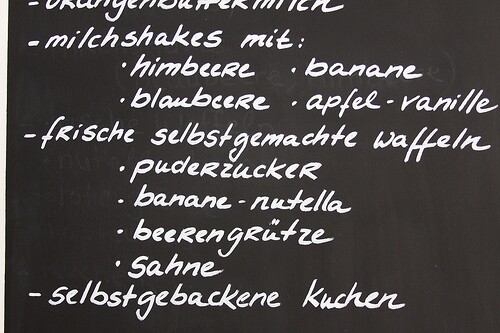 - orangenbuttermilch
- milchshakes mit:
· himbeere · banane
· blaubeere · apfel-vanille
- frische selbstgemachte waffeln
· puderzucker
· banane-nutella
· beerengrütze
· sahne
- selbstgebackene kuchen